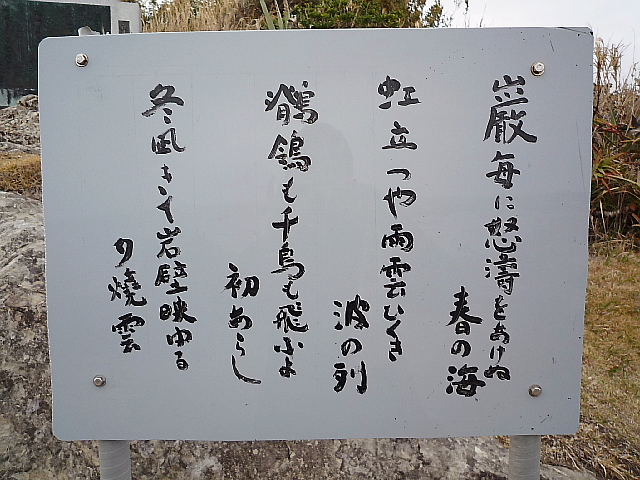 巌毎に怒濤をあげぬ
春の海
虹立つや雨雲ひくき
波の列
鶺鴒も千鳥も飛ぶよ
初あらし
冬凪きて岩壁映ゆる
夕燒雲